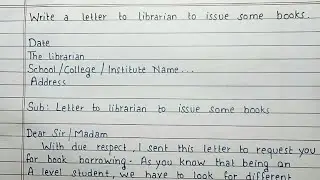 Write a letter to librarian to issue some books.
Date
The Librarian
School/College/Institute Name...
Address
Sub: Letter to librarian to issue some books
Dear Sir/Madam
With due respect, I sent this letter to request you
for book borrowing. As you know that being an
A level student, we have to look for different